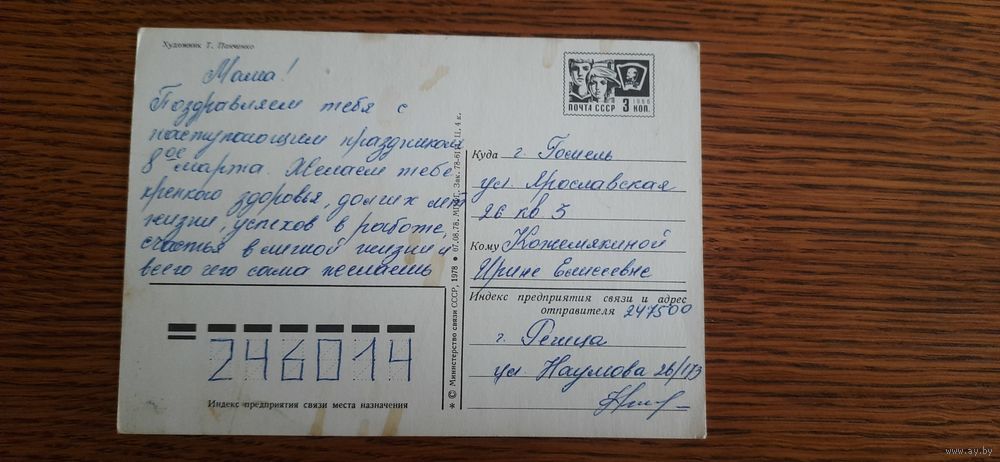 Художник Т. Панченко
Мама!
Поздравляем тебя с
наступающим праздником
8ое марта. Желаем тебе
крепкого здоровья, долгих лет
жизни, успехов в работе,
счастья в личной жизни и
всего чего сама желаешь
246014
Индекс предприятия связи места назначения
* © Министерство связи СССР, 1978 • 07.08.78. Зак. 78- Ц. 4 к.
ПОЧТА СССР 3 КОП.
1966
Куда г. Гомель
ул. Ярославская
26 кв 3
Кому Кожемякиной
Ирине Елисеевне
Индекс предприятия связи и адрес
отправителя 247500
г. Речица
ул. Наумова 26/173
www.ay.by